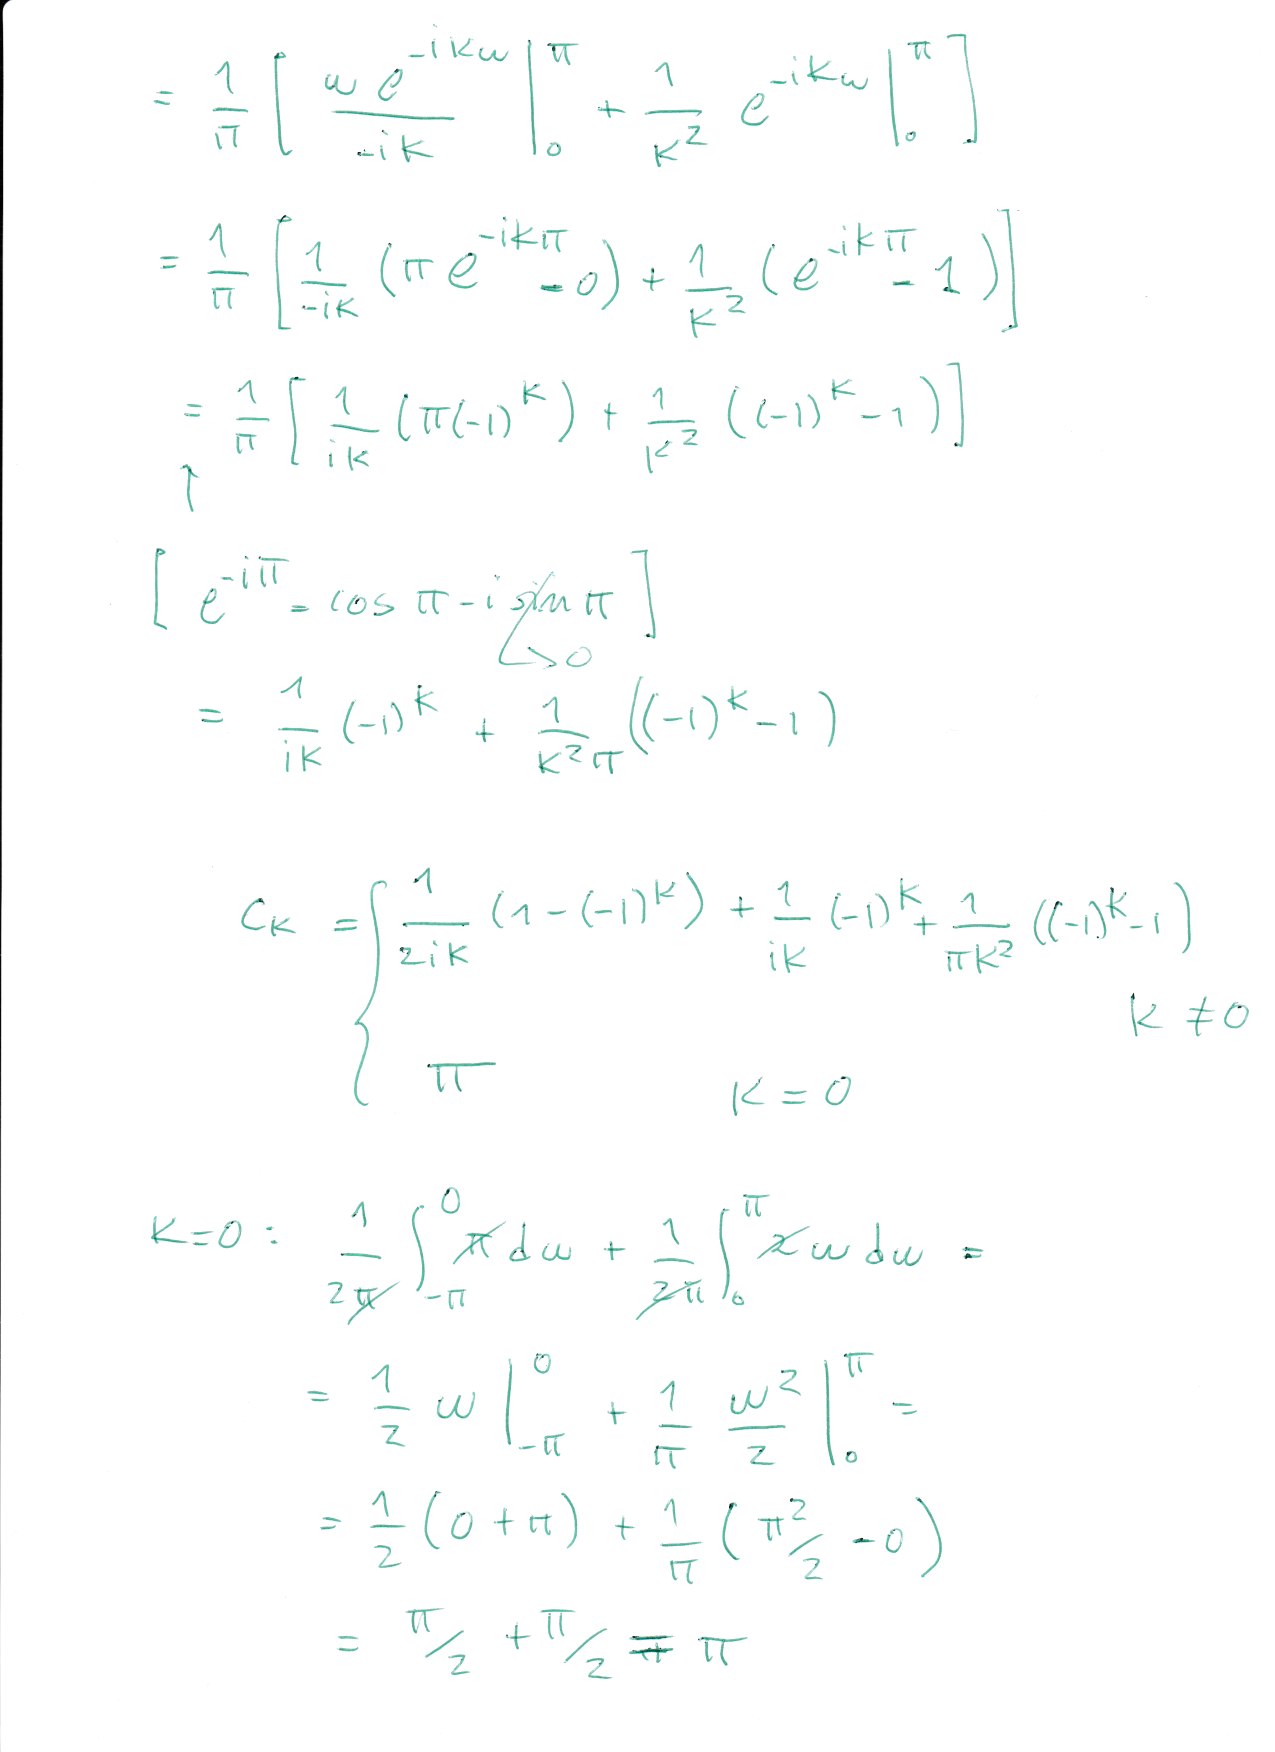 = 1/π [ ω e^{-ikω}/-ik |_0^π + 1/k² e^{-ikω} |_0^π ]
= 1/π [ 1/-ik (π e^{-ikπ} - 0) + 1/k² (e^{-ikπ} - 1) ]
= 1/π [ 1/ik (π(-1)^k) + 1/k² ((-1)^k - 1) ]
↑
[ e^{-iπ} = cos π - i sin π ]
↳ 0
= 1/ik (-1)^k + 1/k²π ((-1)^k - 1)
C_k = { 1/2ik (1 - (-1)^k) + 1/ik (-1)^k + 1/πk² ((-1)^k - 1)
k ≠ 0
π k = 0
k=0: 1/2π ∫_{-π}^0 π dω + 1/2π ∫_0^π 2ω dω =
= 1/2 ω |_{-π}^0 + 1/π ω²/2 |_0^π =
= 1/2 (0 + π) + 1/π (π²/2 - 0)
= π/2 + π/2 = π